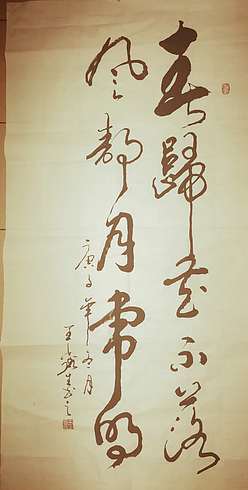 春歸花不落
風靜月常明
庚子年五月